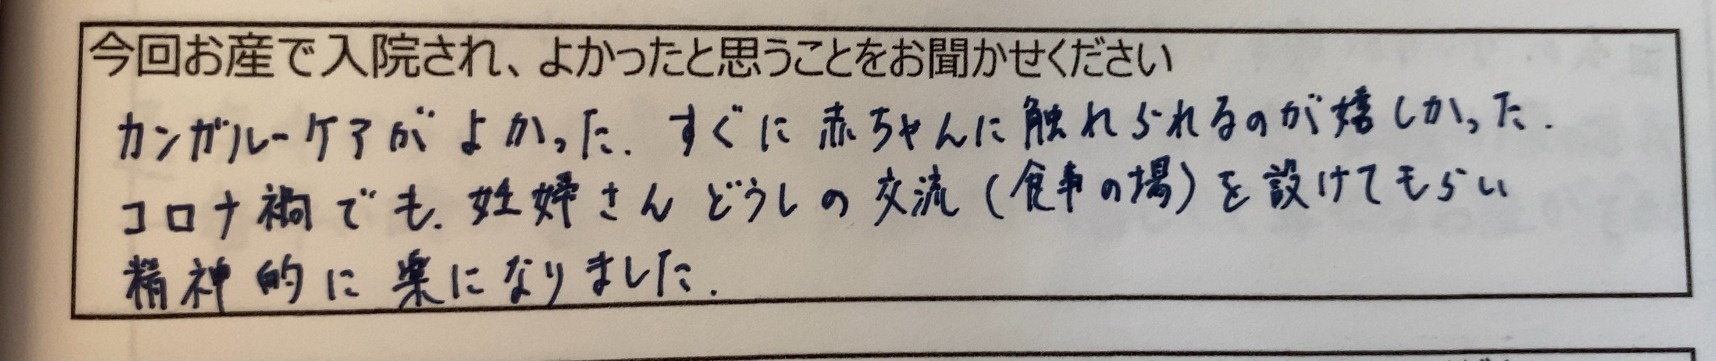 今回お産で入院され、よかったと思うことをお聞かせください
カンガルーケアがよかった。すぐに赤ちゃんに触れられるのが嬉しかった。
コロナ禍でも、妊婦さんどうしの交流(食事の場)を設けてもらい
精神的に楽になりました。